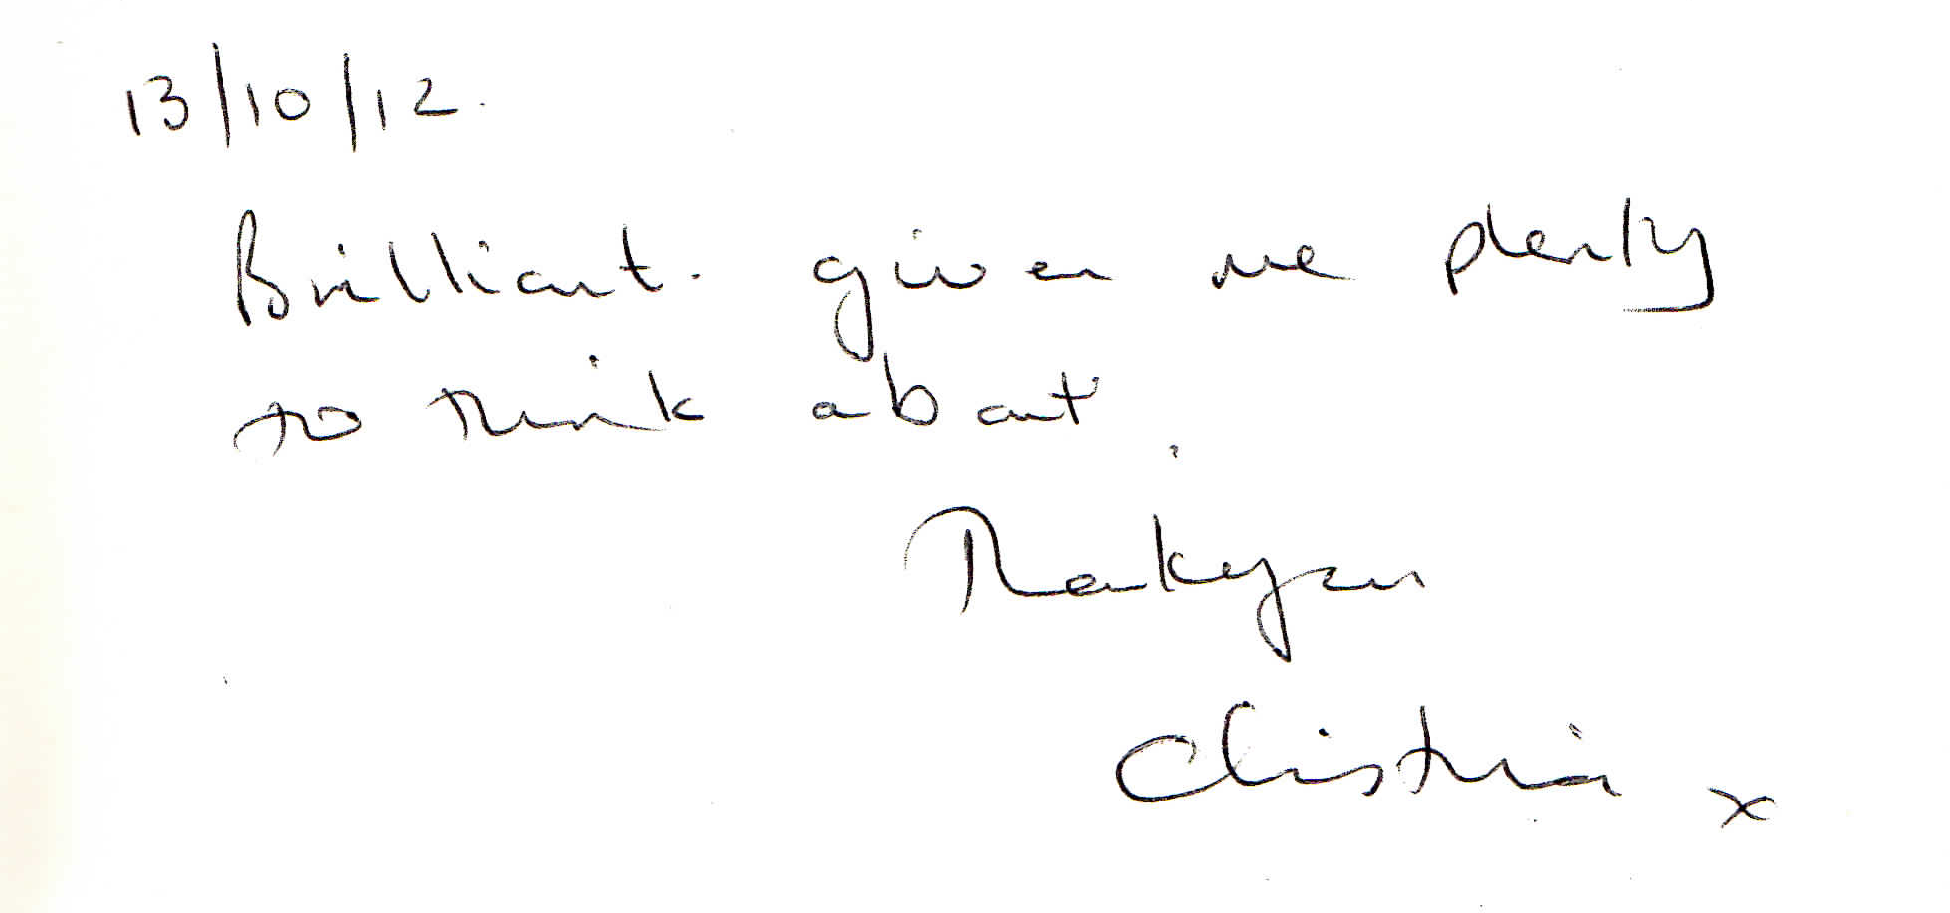 13/10/12.
Brilliant. given me plenty
to think about.
Thankyou
Christina x